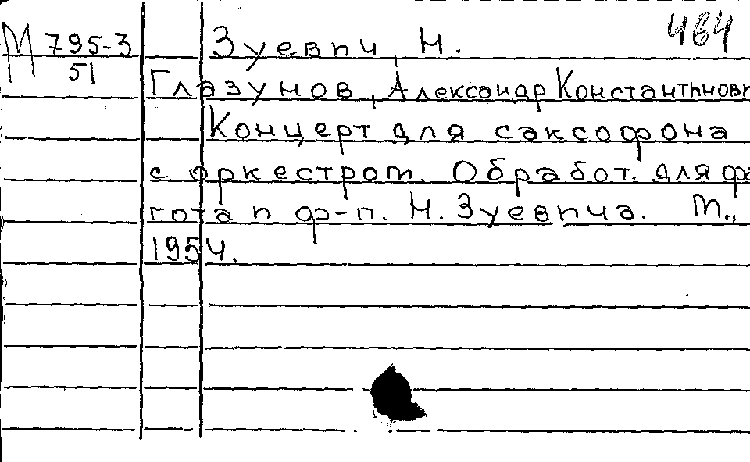 М 795-3 Зуевич, Н. 464
51
Глазунов, Александр Константинович
Концерт для саксофона
с оркестром. Обработ. для фа-
гота и ф-п. Н. Зуевича. М.,
1954.